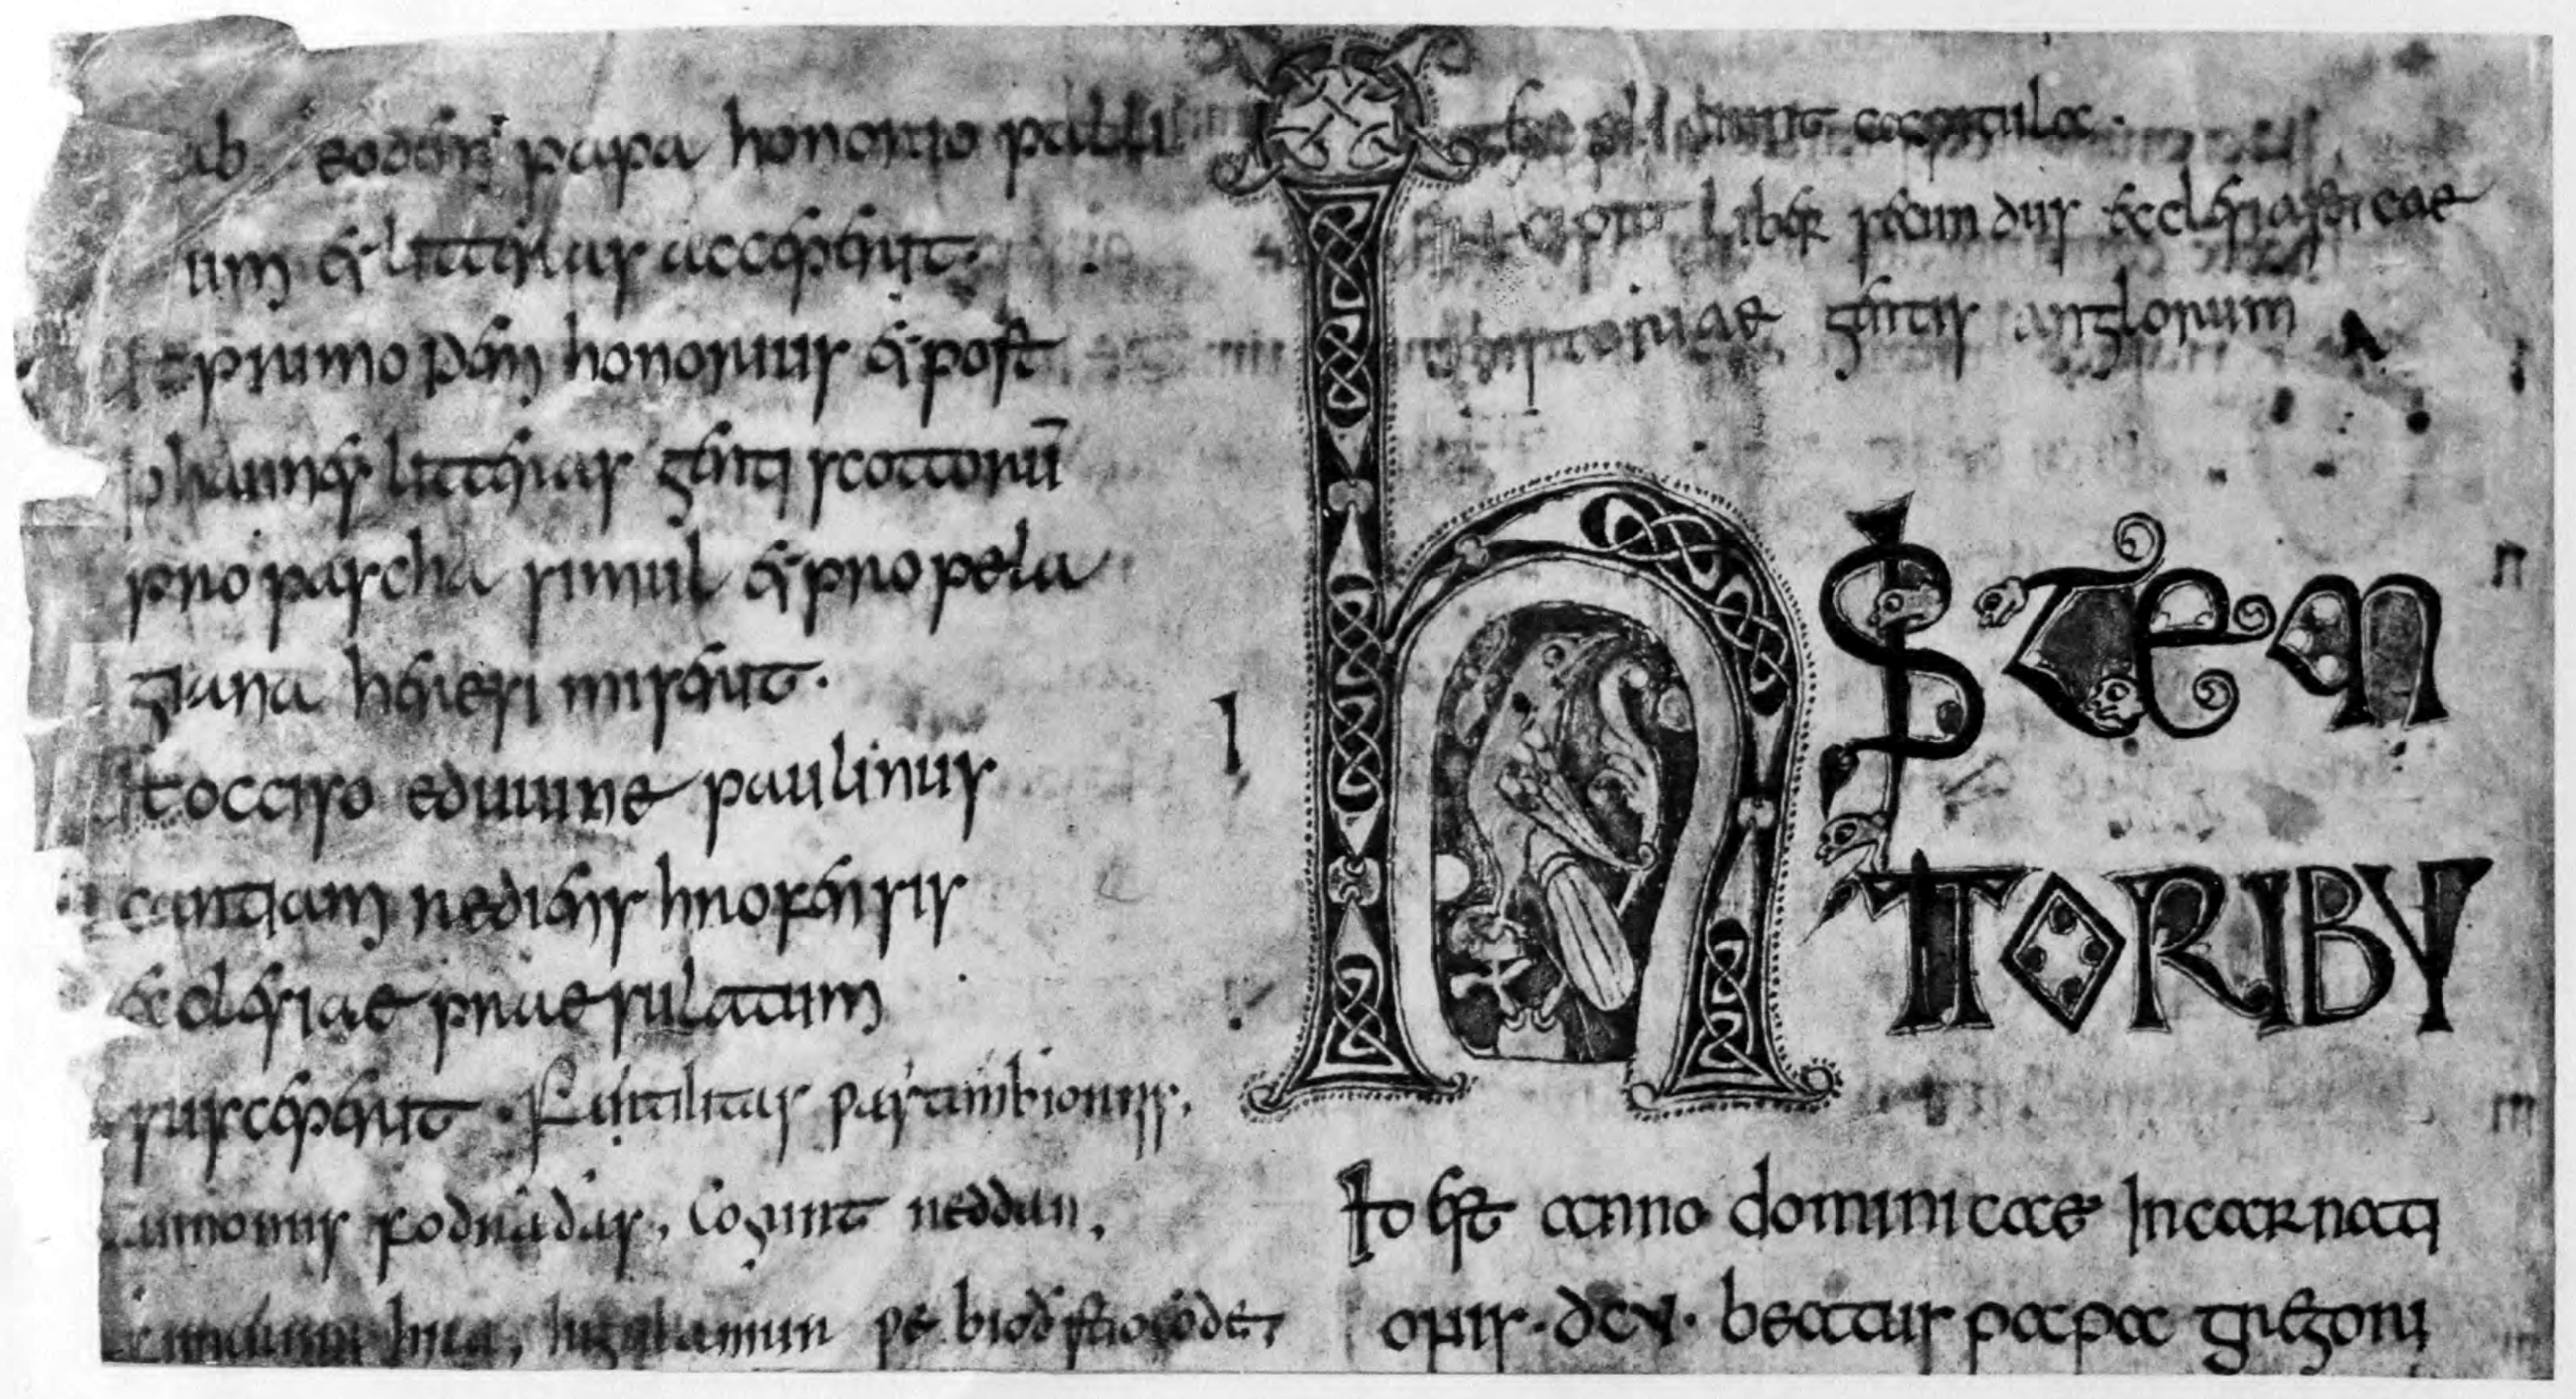 ab eodem papa honorio palli
um et litteras acceperit.
ut primo idem honorius et post
iohannes litteras genti scottorū
pro pascha simul et pro pela
giana heresi miserit.
ut occiso eduuine paulinus
cantiam rediens hrofensis
ecclesiae praesulatum
susceperit.
Cogunt neddan,
capitula.
incipit liber secundus ecclesiasticae
historiae gentis anglorum
hIS TEM
PORIBV
Id est anno dominicae Incarnati
onis · dcv · beatus papa gregori